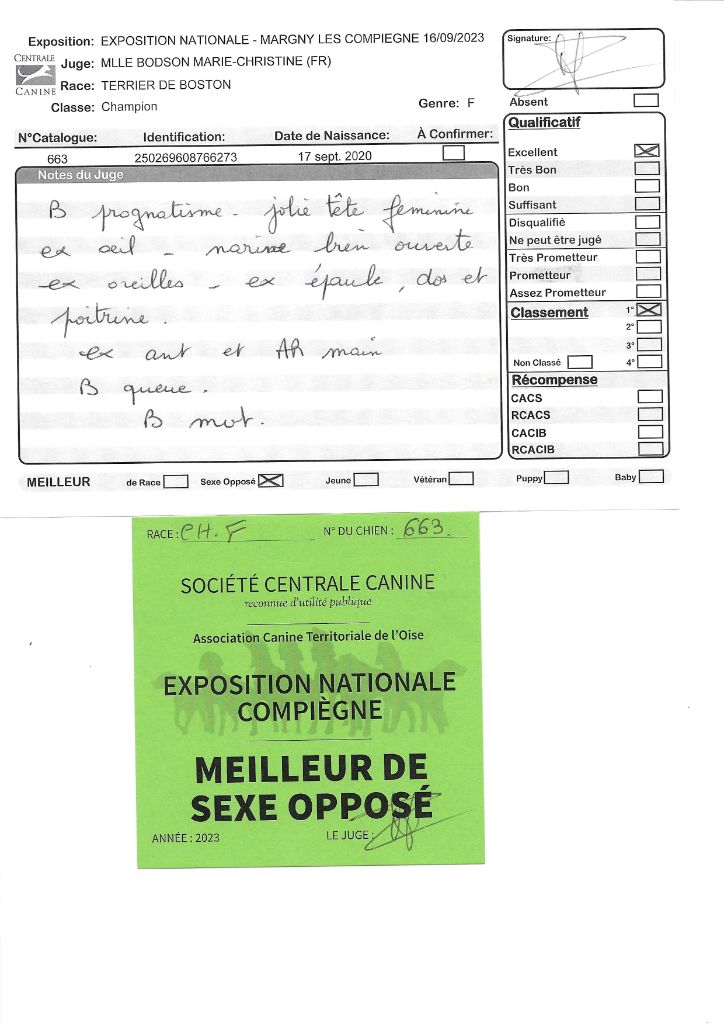 Exposition: EXPOSITION NATIONALE - MARGNY LES COMPIEGNE 16/09/2023
CENTRALE CANINE
Juge: MLLE BODSON MARIE-CHRISTINE (FR)
Race: TERRIER DE BOSTON
Classe: Champion Genre: F
N°Catalogue: Identification: Date de Naissance: À Confirmer:
663 250269608766273 17 sept. 2020
Notes du Juge
B prognatisme - jolie tête feminine
ex oeil - narine bien ouverte
ex oreilles - ex épaule, dos et
poitrine.
ex ant et AR main
B queue.
B mvt.
Signature:
Absent
Qualificatif
Excellent
Très Bon
Bon
Suffisant
Disqualifié
Ne peut être jugé
Très Prometteur
Prometteur
Assez Prometteur
Classement 1°
2°
3°
Non Classé 4°
Récompense
CACS
RCACS
CACIB
RCACIB
MEILLEUR de Race Sexe Opposé Jeune Vétéran Puppy Baby
RACE : CH. F N° DU CHIEN : 663.
SOCIÉTÉ CENTRALE CANINE
reconnue d'utilité publique
Association Canine Territoriale de l'Oise
EXPOSITION NATIONALE
COMPIÈGNE
MEILLEUR DE
SEXE OPPOSÉ
ANNÉE : 2023 LE JUGE :